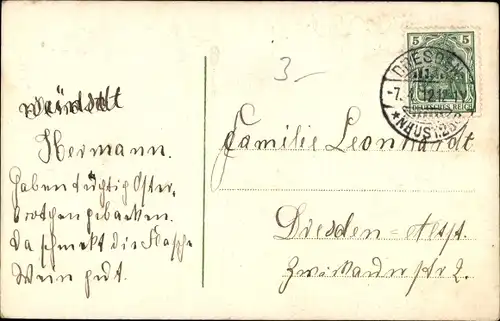 wünscht
Hermann.
Haben tüchtig Oster-
brotchen gebacken.
Da schmekt die Flasche
Wein gut.
3-
5 5
DRESDEN
-7.4.12
DEUTSCHES REICH
Familie Leonhardt
Dresden=Altst.
Zwickauerstr 2.